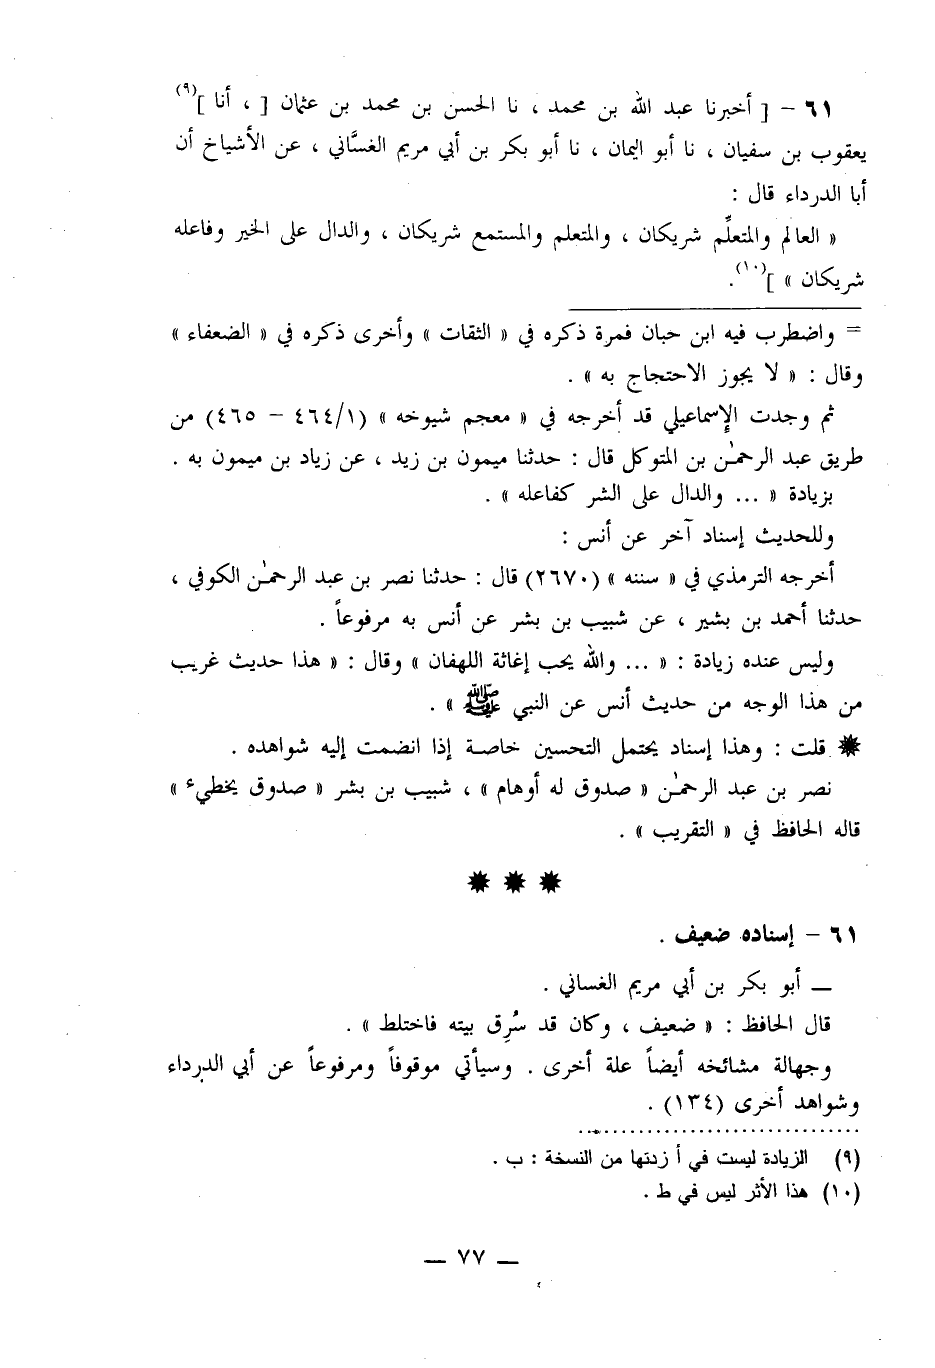 ٦١ - [ أخبرنا عبد الله بن محمد ، نا الحسن بن محمد بن عثمان [ ، أنا ](٩)
يعقوب بن سفيان ، نا أبو اليمان ، نا أبو بكر بن أبي مريم الغسَّاني ، عن الأشياخ أن
أبا الدرداء قال :
« العالم والمتعلِّم شريكان ، والمتعلم والمستمع شريكان ، والدال على الخير وفاعله
شريكان » ](١٠).
= واضطرب فيه ابن حبان فمرة ذكره في « الثقات » وأخرى ذكره في « الضعفاء »
وقال : « لا يجوز الاحتجاج به » .
ثم وجدت الإسماعيلي قد أخرجه في « معجم شيوخه » (٤٦٤/١ - ٤٦٥) من
طريق عبد الرحمٰن بن المتوكل قال : حدثنا ميمون بن زيد ، عن زياد بن ميمون به .
بزيادة « ... والدال على الشر كفاعله » .
وللحديث إسناد آخر عن أنس :
أخرجه الترمذي في « سننه » (٢٦٧٠) قال : حدثنا نصر بن عبد الرحمٰن الكوفي ،
حدثنا أحمد بن بشير ، عن شبيب بن بشر عن أنس به مرفوعاً .
وليس عنده زيادة : « ... والله يحب إغاثة اللهفان » وقال : « هذا حديث غريب
من هذا الوجه من حديث أنس عن النبي ﷺ » .
✹ قلت : وهذا إسناد يحتمل التحسين خاصة إذا انضمت إليه شواهده .
نصر بن عبد الرحمٰن « صدوق له أوهام » ، شبيب بن بشر « صدوق يخطيء »
قاله الحافظ في « التقريب » .
✹ ✹ ✹
٦١ - إسناده ضعيف .
— أبو بكر بن أبي مريم الغساني .
قال الحافظ : « ضعيف ، وكان قد سُرِق بيته فاختلط » .
وجهالة مشائخه أيضاً علة أخرى . وسيأتي موقوفاً ومرفوعاً عن أبي الدرداء
وشواهد أخرى (١٣٤) .
(٩) الزيادة ليست في أ زدتها من النسخة : ب .
(١٠) هذا الأثر ليس في ط .
— ٧٧ —